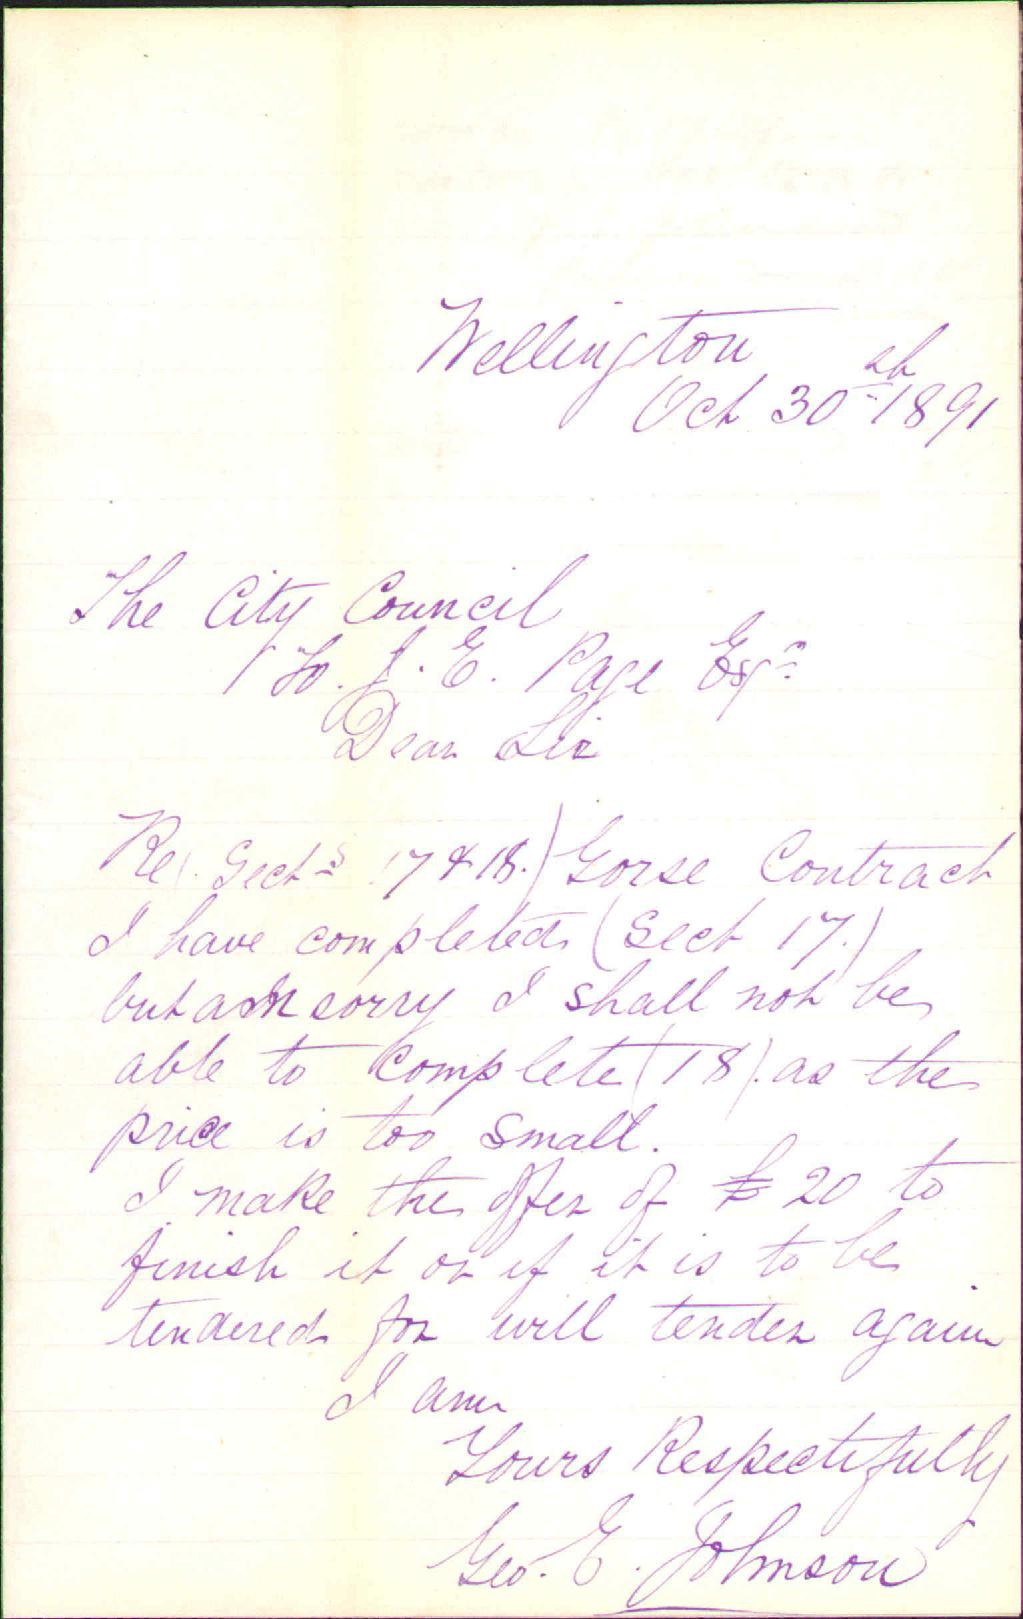 Wellington
Oct 30th 1891
The City Council
To. J. E. Page Esqr
Dear Sir
Re. Sects 17 & 18.) Gorse Contract
I have completed (Sect 17.)
but am sorry I shall not be
able to complete (18). as the
price is too small.
I make the offer of £20 to
finish it or if it is to be
tendered for will tender again
I am
Yours Respectifully
Geo. E. Johnson